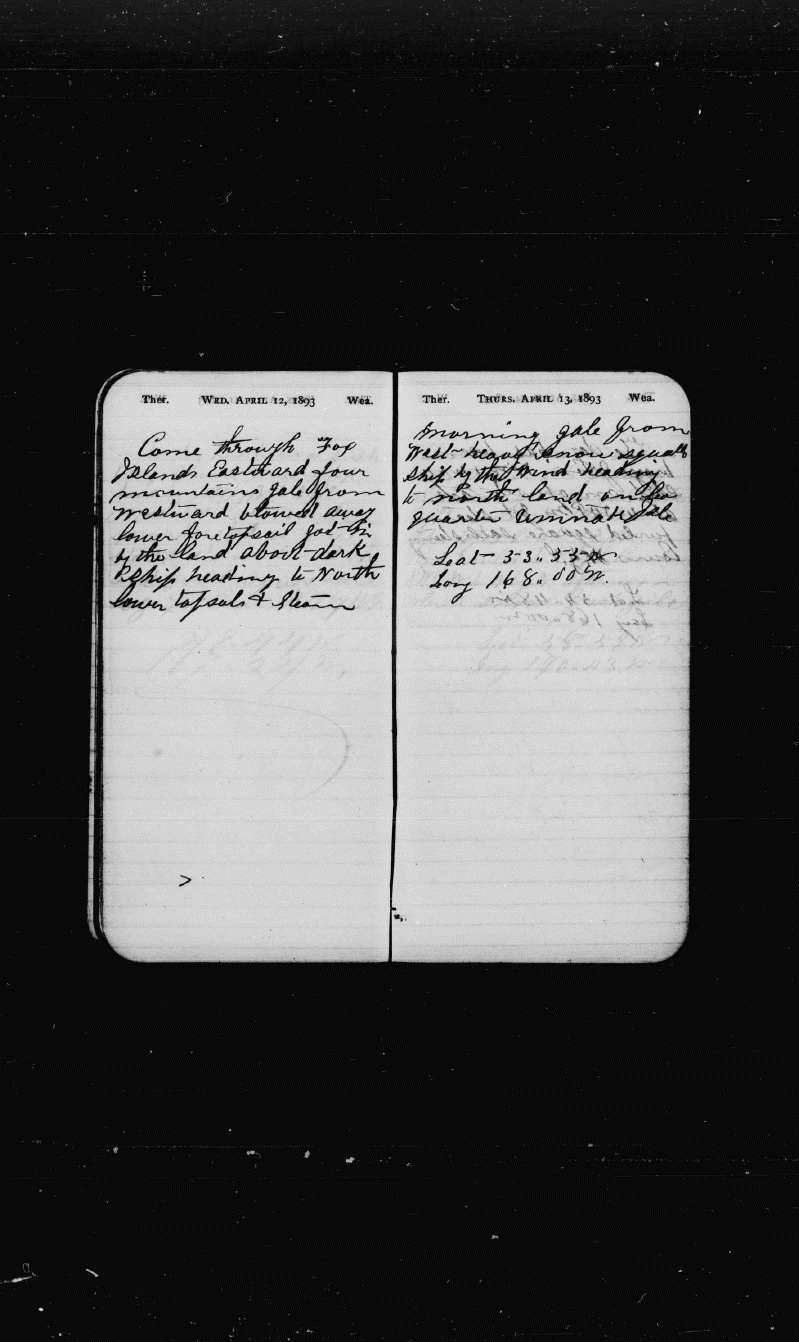 Ther. WED. APRIL 12, 1893 Wea.
Come through Fox
Islands Eastward four
mountains gale from
Westward blowed away
lower foretopsail got in
by the land about dark
Ship heading to North
lower topsails & Steam
Ther. THURS. APRIL 13, 1893 Wea.
morning gale from
West heavy snow squalls
Ship by the Wind heading
to North land on lee
quarter
Lat 53.. 53 N
Long 168.. 00 W.